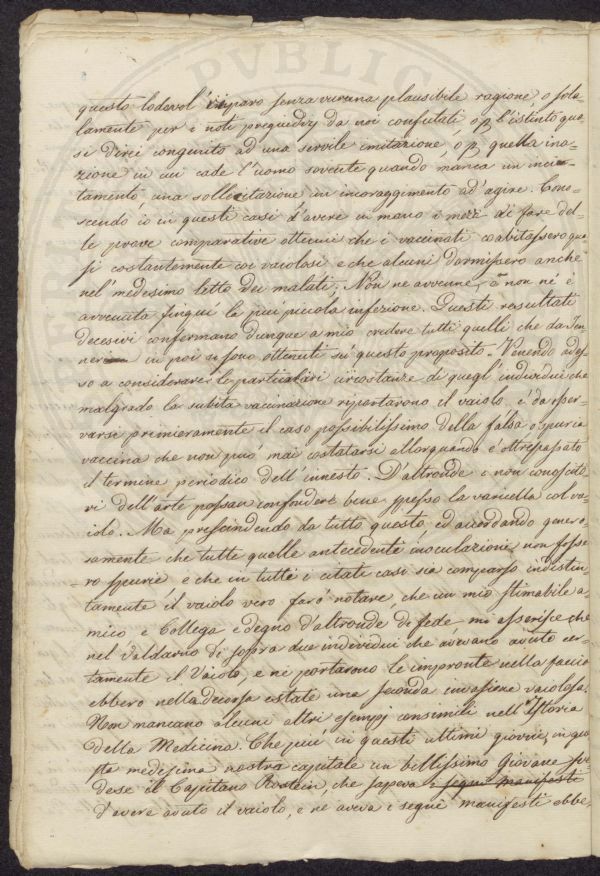 PVBLIC
questo lodevol riparo senza veruna plausibile ragione, o sola-
lamente per i noti pregiudizj da noi confutati, o p l'istinto qua-
si direi congiunto ad una servile imitazione, o p quella ina-
zione in cui cade l'uomo sovente quando manca un inci-
tamento, una sollecitazione, un incoraggimento ad'agire. Cono-
scendo io in questi casi d'avere in mano i mezzi di fare del-
le prove comparative ottenni che i vaccinati coabitassero qua-
si costantemente coi vaiolosi e che alcuni dormissero anche
nel' medesimo letto dei malati; Non ne avvenne, e non ne è
avvenuta fin qui la piui piccola infezione. Questi resultati
decesivi confermano dunque a mio credere tutti quelli che da Jen-
ner in poi si sono ottenuti su' questo proposito. Venendo ades-
so a considerare le particolari circostanze di quegl' individui che
malgrado la subita vaccinazione riportarono il vaiolo, è da osser-
varsi primieramente il caso possibilissimo della falsa o spuria
vaccina che non puo' mai costatarsi allorquando è oltrepassato
il termine periodico dell'innesto. D'altronde i non conoscito-
ri dell'arte possan confondere bene spesso la varicella col va-
iolo. Ma prescindendo da tutto questo, ed accordando genero-
samente che tutte quelle antecedenti inoculazioni non fosse-
ro spurie e che in tutti i citati casi sia comparso indistin-
tamente il vaiolo vero farò notare, che un mio stimabile a-
mico e Collega e degno d'altronde di fede mi asserisce che
nel Valdarno di sopra due individui che avevano avuto cer-
tamente il Vaiolo, e ne portarono le impronte nella faccia
ebbero nella decorsa estate una seconda invasione vaiolosa.
Non mancano alcuni altri esempj consimili nell'Istoria
della Medicina. Che piu in questi ultimi giorni, in que-
sta medesima nostra capitale un bellissimo Giovane
desse il Capitano che sapeva e segni manifesti
d'avere avuto il vaiolo, e ne aveva i segni manifesti ebbe